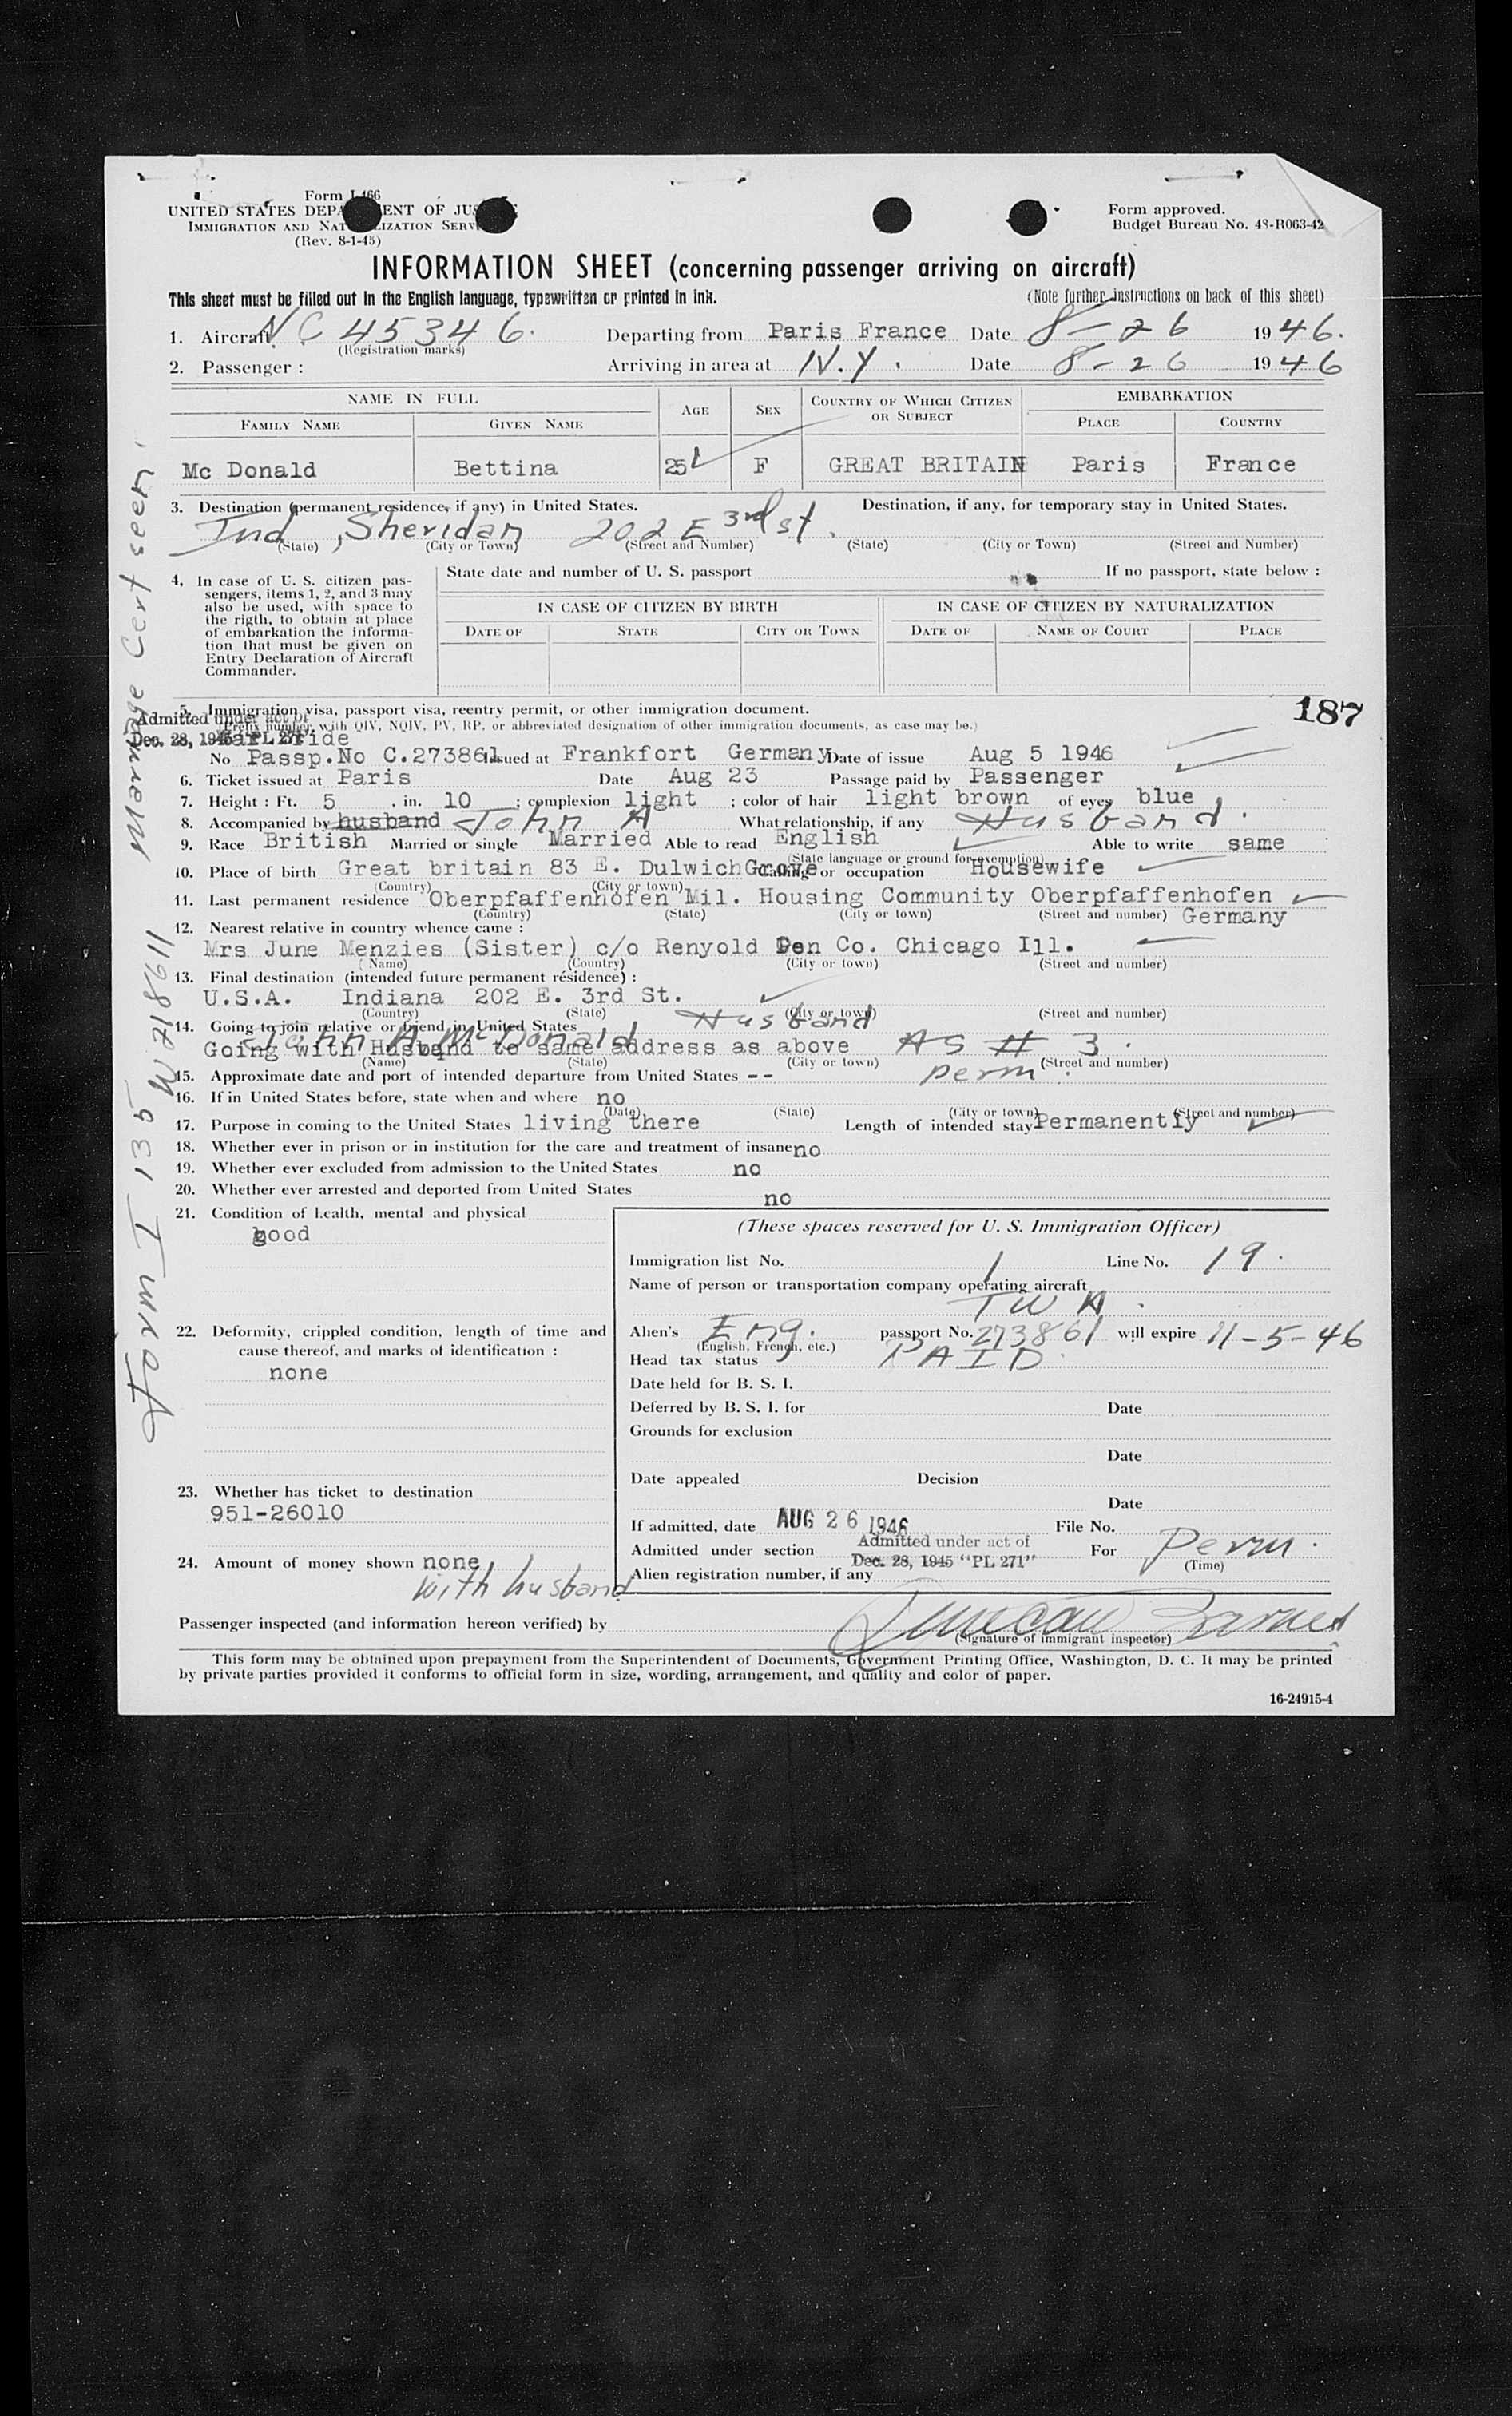 Form I-466
UNITED STATES DEPA ENT OF JUS
IMMIGRATION AND NAT LIZATION SERV
(Rev. 8-1-45)
Form approved.
Budget Bureau No. 43-R063-42
INFORMATION SHEET (concerning passenger arriving on aircraft)
This sheet must be filled out in the English language, typewritten or printed in ink. (Note further instructions on back of this sheet)
1. Aircraft NC 45346. Departing from Paris France Date 8-26 1946.
(Registration marks)
2. Passenger : Arriving in area at N.Y. Date 8-26 1946
NAME IN FULL AGE SEX COUNTRY OF WHICH CITIZEN OR SUBJECT EMBARKATION
FAMILY NAME GIVEN NAME PLACE COUNTRY
Mc Donald Bettina 25 F GREAT BRITAIN Paris France
3. Destination (permanent residence, if any) in United States. Destination, if any, for temporary stay in United States.
Ind , Sheridan 202 E 3rd st.
(State) (City or Town) (Street and Number) (State) (City or Town) (Street and Number)
4. In case of U. S. citizen pas-
sengers, items 1, 2, and 3 may
also be used, with space to
the rigth, to obtain at place
of embarkation the informa-
tion that must be given on
Entry Declaration of Aircraft
Commander.
State date and number of U. S. passport If no passport, state below :
IN CASE OF CITIZEN BY BIRTH IN CASE OF CITIZEN BY NATURALIZATION
DATE OF STATE CITY OR TOWN DATE OF NAME OF COURT PLACE
187
5. Immigration visa, passport visa, reentry permit, or other immigration document.
(Prefix number with QIV, NQIV, PV, RP, or abbreviated designation of other immigration documents, as case may be.)
Admitted under act of
Dec. 28, 1945 "PL 271"
No Passp.No C.273861 Issued at Frankfort Germany Date of issue Aug 5 1946
6. Ticket issued at Paris Date Aug 23 Passage paid by Passenger
7. Height : Ft. 5 , in. 10 ; complexion light ; color of hair light brown of eyes blue
8. Accompanied by husband John A What relationship, if any Husband.
9. Race British Married or single Married Able to read English Able to write same
(State language or ground for exemption)
10. Place of birth Great britain 83 E. Dulwich Grove Calling or occupation Housewife
(Country) (City or town)
11. Last permanent residence Oberpfaffenhofen Mil. Housing Community Oberpfaffenhofen
(Country) (State) (City or town) (Street and number) Germany
12. Nearest relative in country whence came :
Mrs June Menzies (Sister) c/o Renyold Pen Co. Chicago Ill.
(Name) (Country) (City or town) (Street and number)
13. Final destination (intended future permanent résidence) :
U.S.A. Indiana 202 E. 3rd St.
(Country) (State) (City or town) (Street and number)
14. Going to join relative or friend in United States Husband
John A McDonald
Going with Husband to same address as above AS # 3.
(Name) (State) (City or town) (Street and number)
15. Approximate date and port of intended departure from United States -- perm.
16. If in United States before, state when and where no
(Date) (State) (City or town) (Street and number)
17. Purpose in coming to the United States living there Length of intended stay Permanently
18. Whether ever in prison or in institution for the care and treatment of insane no
19. Whether ever excluded from admission to the United States no
20. Whether ever arrested and deported from United States no
21. Condition of health, mental and physical
good
22. Deformity, crippled condition, length of time and
cause thereof, and marks of identification :
none
23. Whether has ticket to destination
951-26010
24. Amount of money shown none
with husband
(These spaces reserved for U. S. Immigration Officer)
Immigration list No. 1 Line No. 19.
Name of person or transportation company operating aircraft
TWA.
Alien's Eng. passport No. 273861 will expire 11-5-46
(English, French, etc.)
Head tax status PAID
Date held for B. S. I.
Deferred by B. S. I. for Date
Grounds for exclusion
Date
Date appealed Decision
Date
If admitted, date AUG 26 1946 File No.
Admitted under section Admitted under act of For Perm.
Dec. 28, 1945 "PL 271" (Time)
Alien registration number, if any
Passenger inspected (and information hereon verified) by Duncan Barnes
(Signature of immigrant inspector)
This form may be obtained upon prepayment from the Superintendent of Documents, Government Printing Office, Washington, D. C. It may be printed
by private parties provided it conforms to official form in size, wording, arrangement, and quality and color of paper.
16-24915-4
Form I 135 Marriage Cert seen.